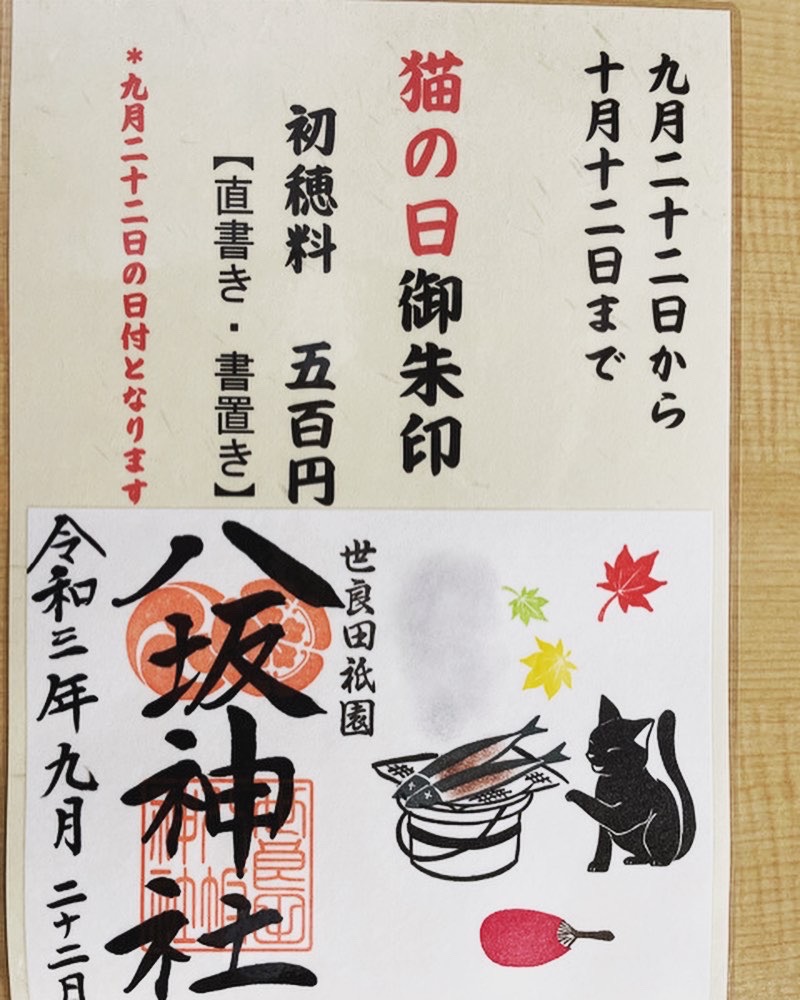 九月二十二日から
十月十二日まで
猫の日御朱印
初穂料 五百円
【直書き・書置き】
*九月二十二日の日付となります
世良田祇園
八坂神社
令和三年九月二十二日